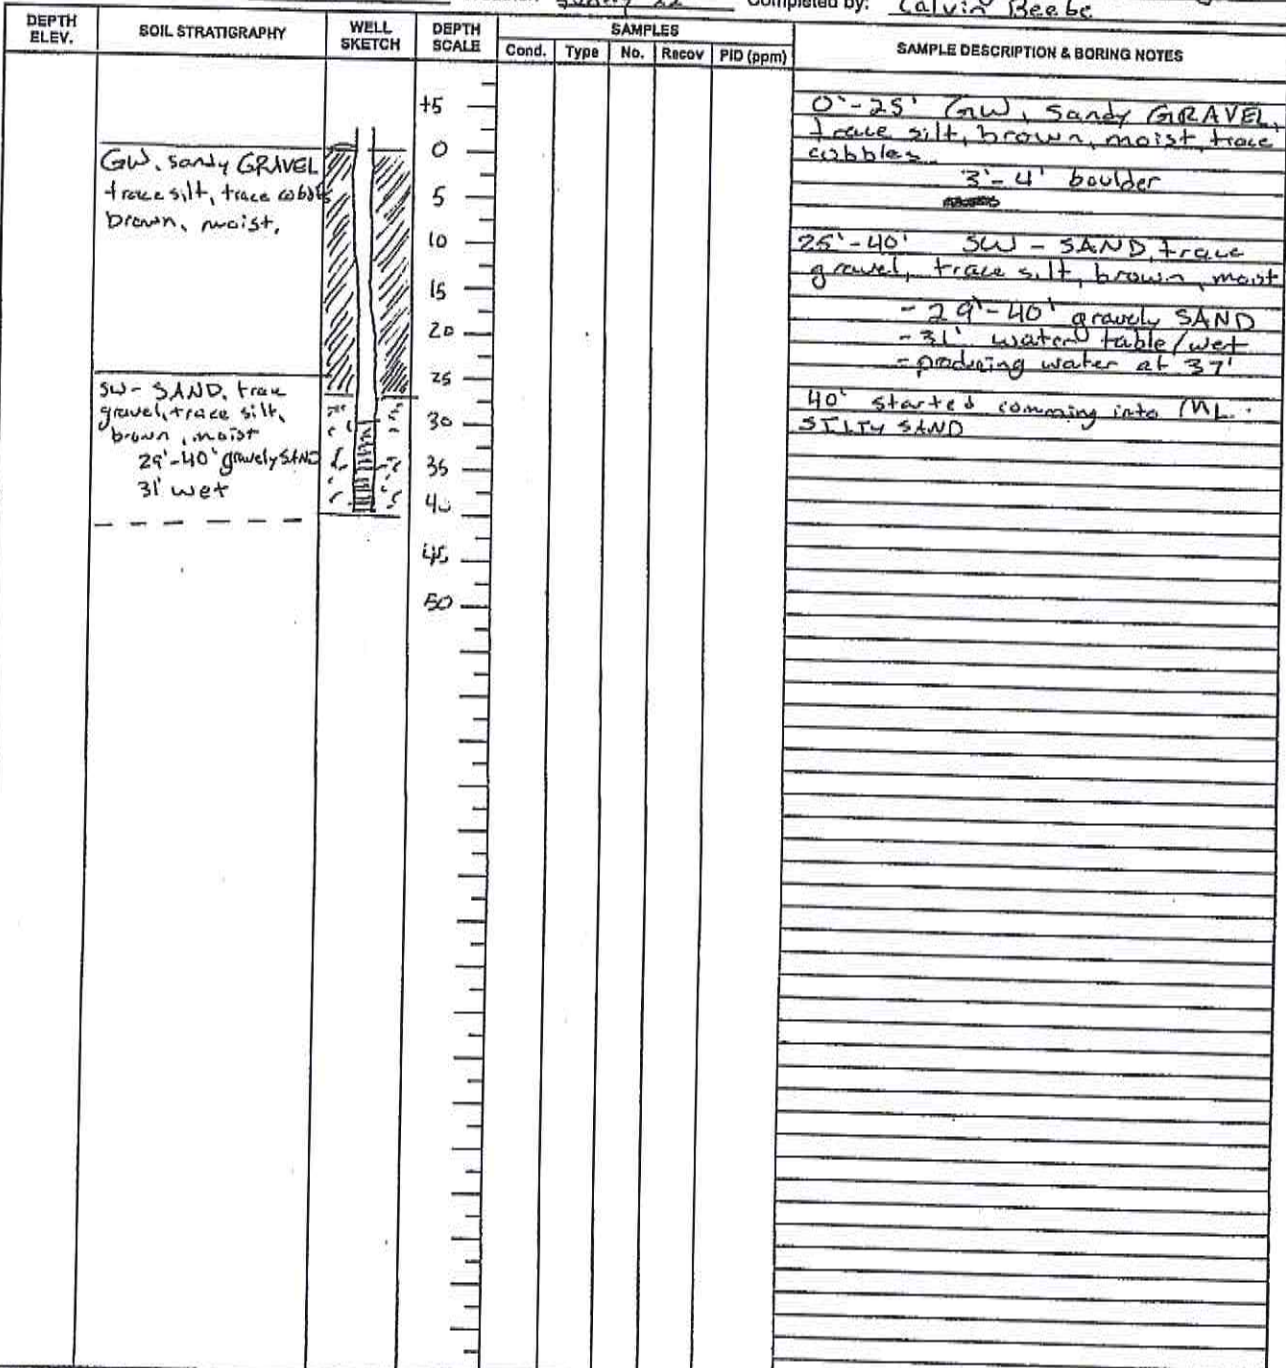 Completed by: Calvin Beebe
DEPTH ELEV.
SOIL STRATIGRAPHY
WELL SKETCH
DEPTH SCALE
SAMPLES
Cond. Type No. Recov PID (ppm)
SAMPLE DESCRIPTION & BORING NOTES
GW, sandy GRAVEL
trace silt, trace cobbles
brown, moist,
SW- SAND, trace
gravel, trace silt,
brown, moist
29'-40' gravely SAND
31' wet
+5
0
5
10
15
20
25
30
35
40
45
50
0'-25' GW, Sandy GRAVEL,
trace silt, brown, moist, trace
cobbles
3'-4' boulder
25'-40' SW - SAND, trace
gravel, trace silt, brown, moist
- 29'-40' gravely SAND
- 31' water table/wet
- producing water at 37'
40' started comming into ML.
SILTY SAND